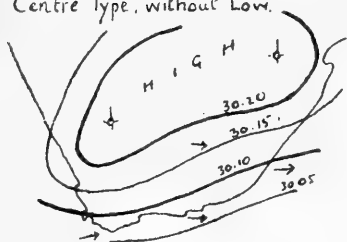 Centre Type, without Low.
H I G H
30.20
30.15
30.10
30.05